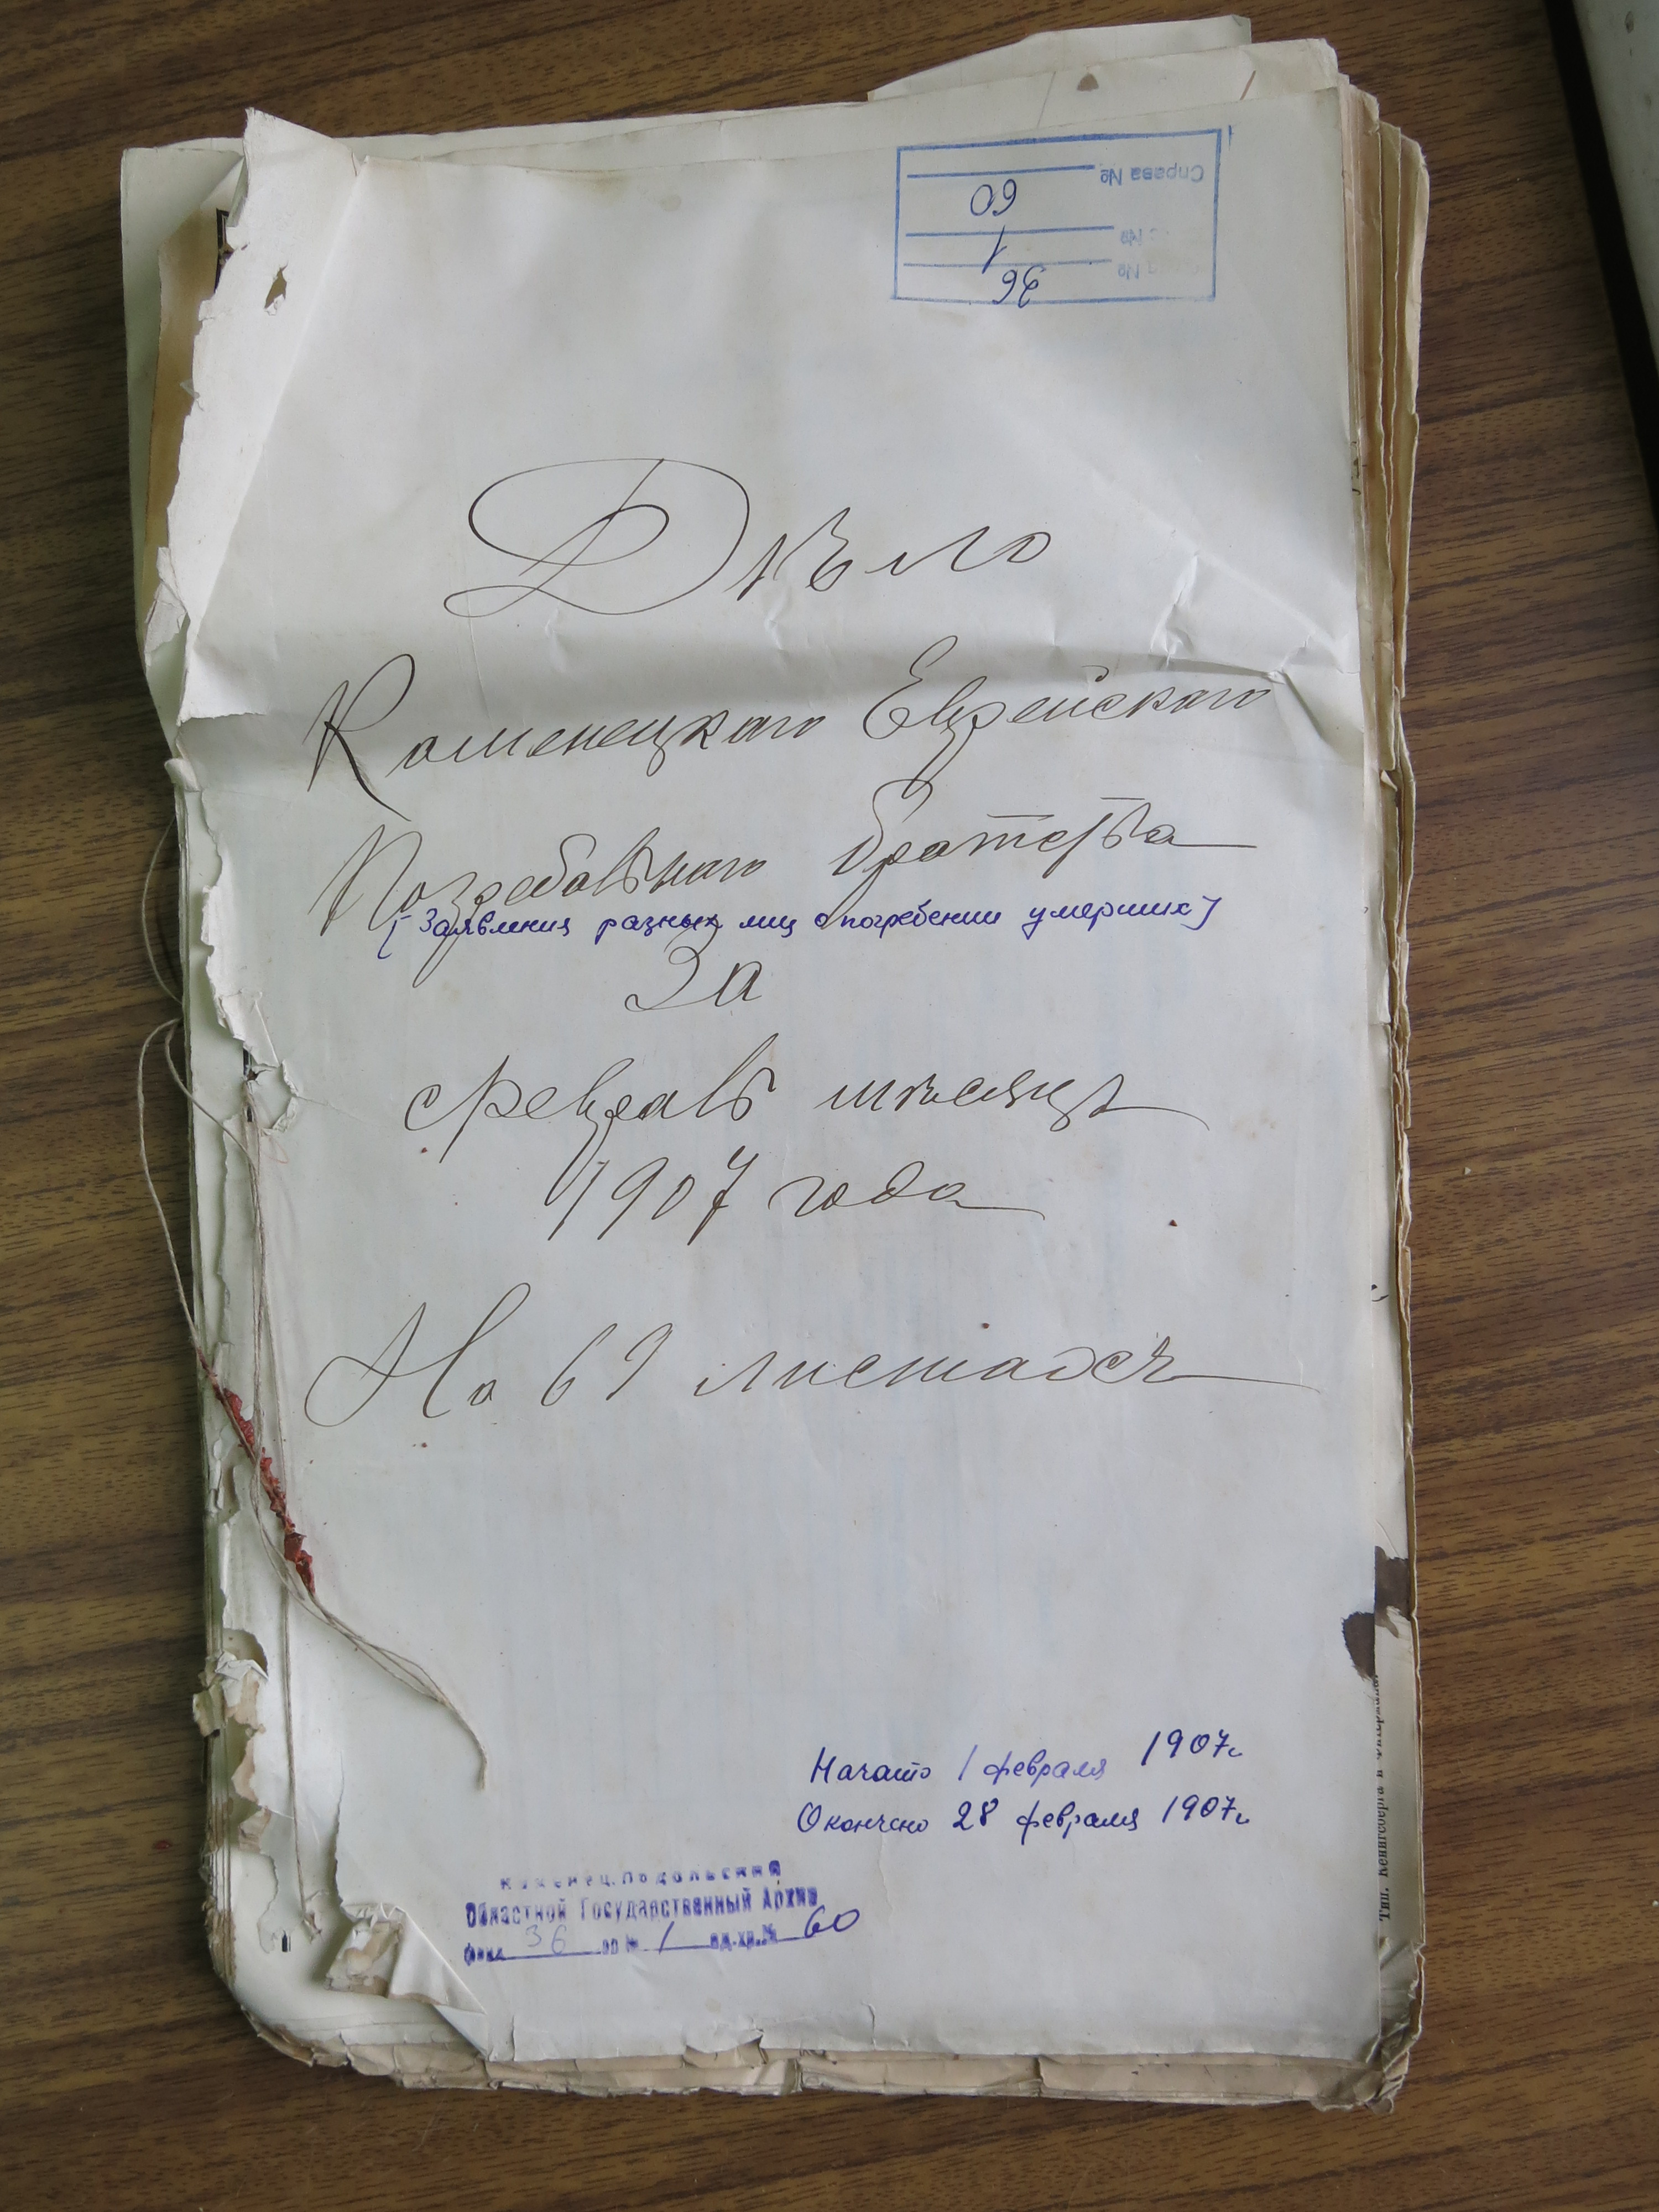 Справа №
60
№ 1
№ 36
Дѣло
Каменецкаго Еврейскаго
Погребальнаго братства
[Заявления разных лиц о погребении умерших]
За
Февраль мѣсяцъ
1907 года
На 69 листахъ
Начато 1 февраля 1907г.
Окончено 28 февраля 1907г.
Каменец-Подольский
Областной Государственный Архив
Фонд 36 оп № 1 ед.хр.№ 60
Тип. Кенигсберга в